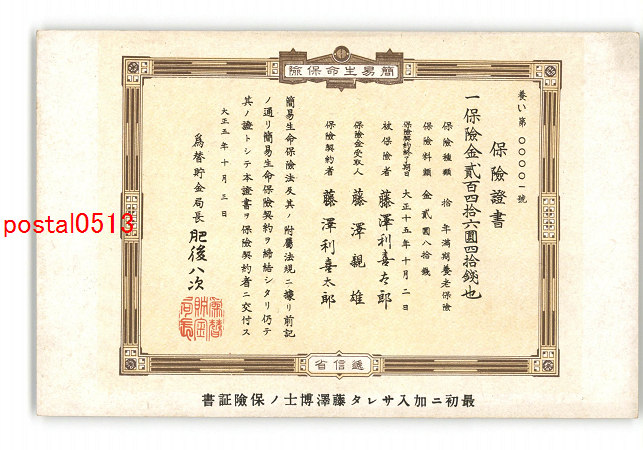 險保命生易簡
養い第〇〇〇〇一號
保險證書
一保險金貳百四拾六圓四拾錢也
保險種類 拾年滿期養老保險
保險料額 金貳圓八拾錢
保險契約終了期日 大正十五年十月二日
被保險者 藤澤利喜太郎
保險金受取人 藤澤親雄
保險契約者 藤澤利喜太郎
簡易生命保險法及其ノ附屬法規ニ據リ前記
ノ通リ簡易生命保險契約ヲ締結シタリ仍テ
其ノ證トシテ本證書ヲ保險契約者ニ交付ス
大正五年十月三日
爲替貯金局長 肥後八次
爲替貯金局長
省信遞
書証險保ノ士博澤藤タレサ入加ニ初最
postal0513